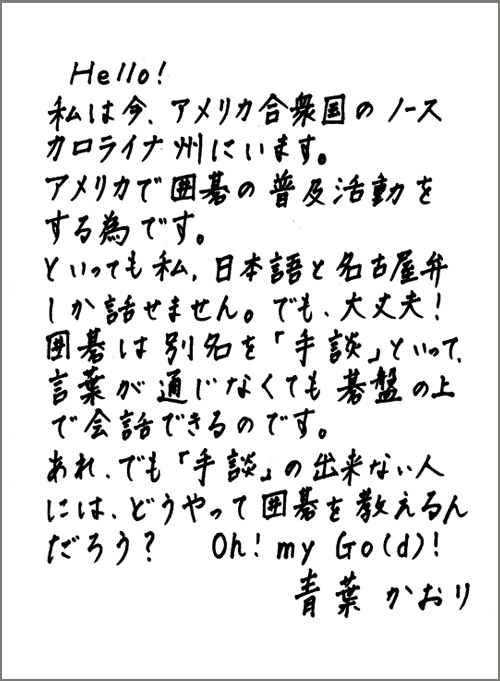 Hello!
私は今、アメリカ合衆国のノース
カロライナ州にいます。
アメリカで囲碁の普及活動を
する為です。
といっても私、日本語と名古屋弁
しか話せません。でも、大丈夫!
囲碁は別名を「手談」といって、
言葉が通じなくても碁盤の上
で会話できるのです。
あれ、でも「手談」の出来ない人
には、どうやって囲碁を教えるん
だろう? Oh! my Go(d)!
青葉かおり